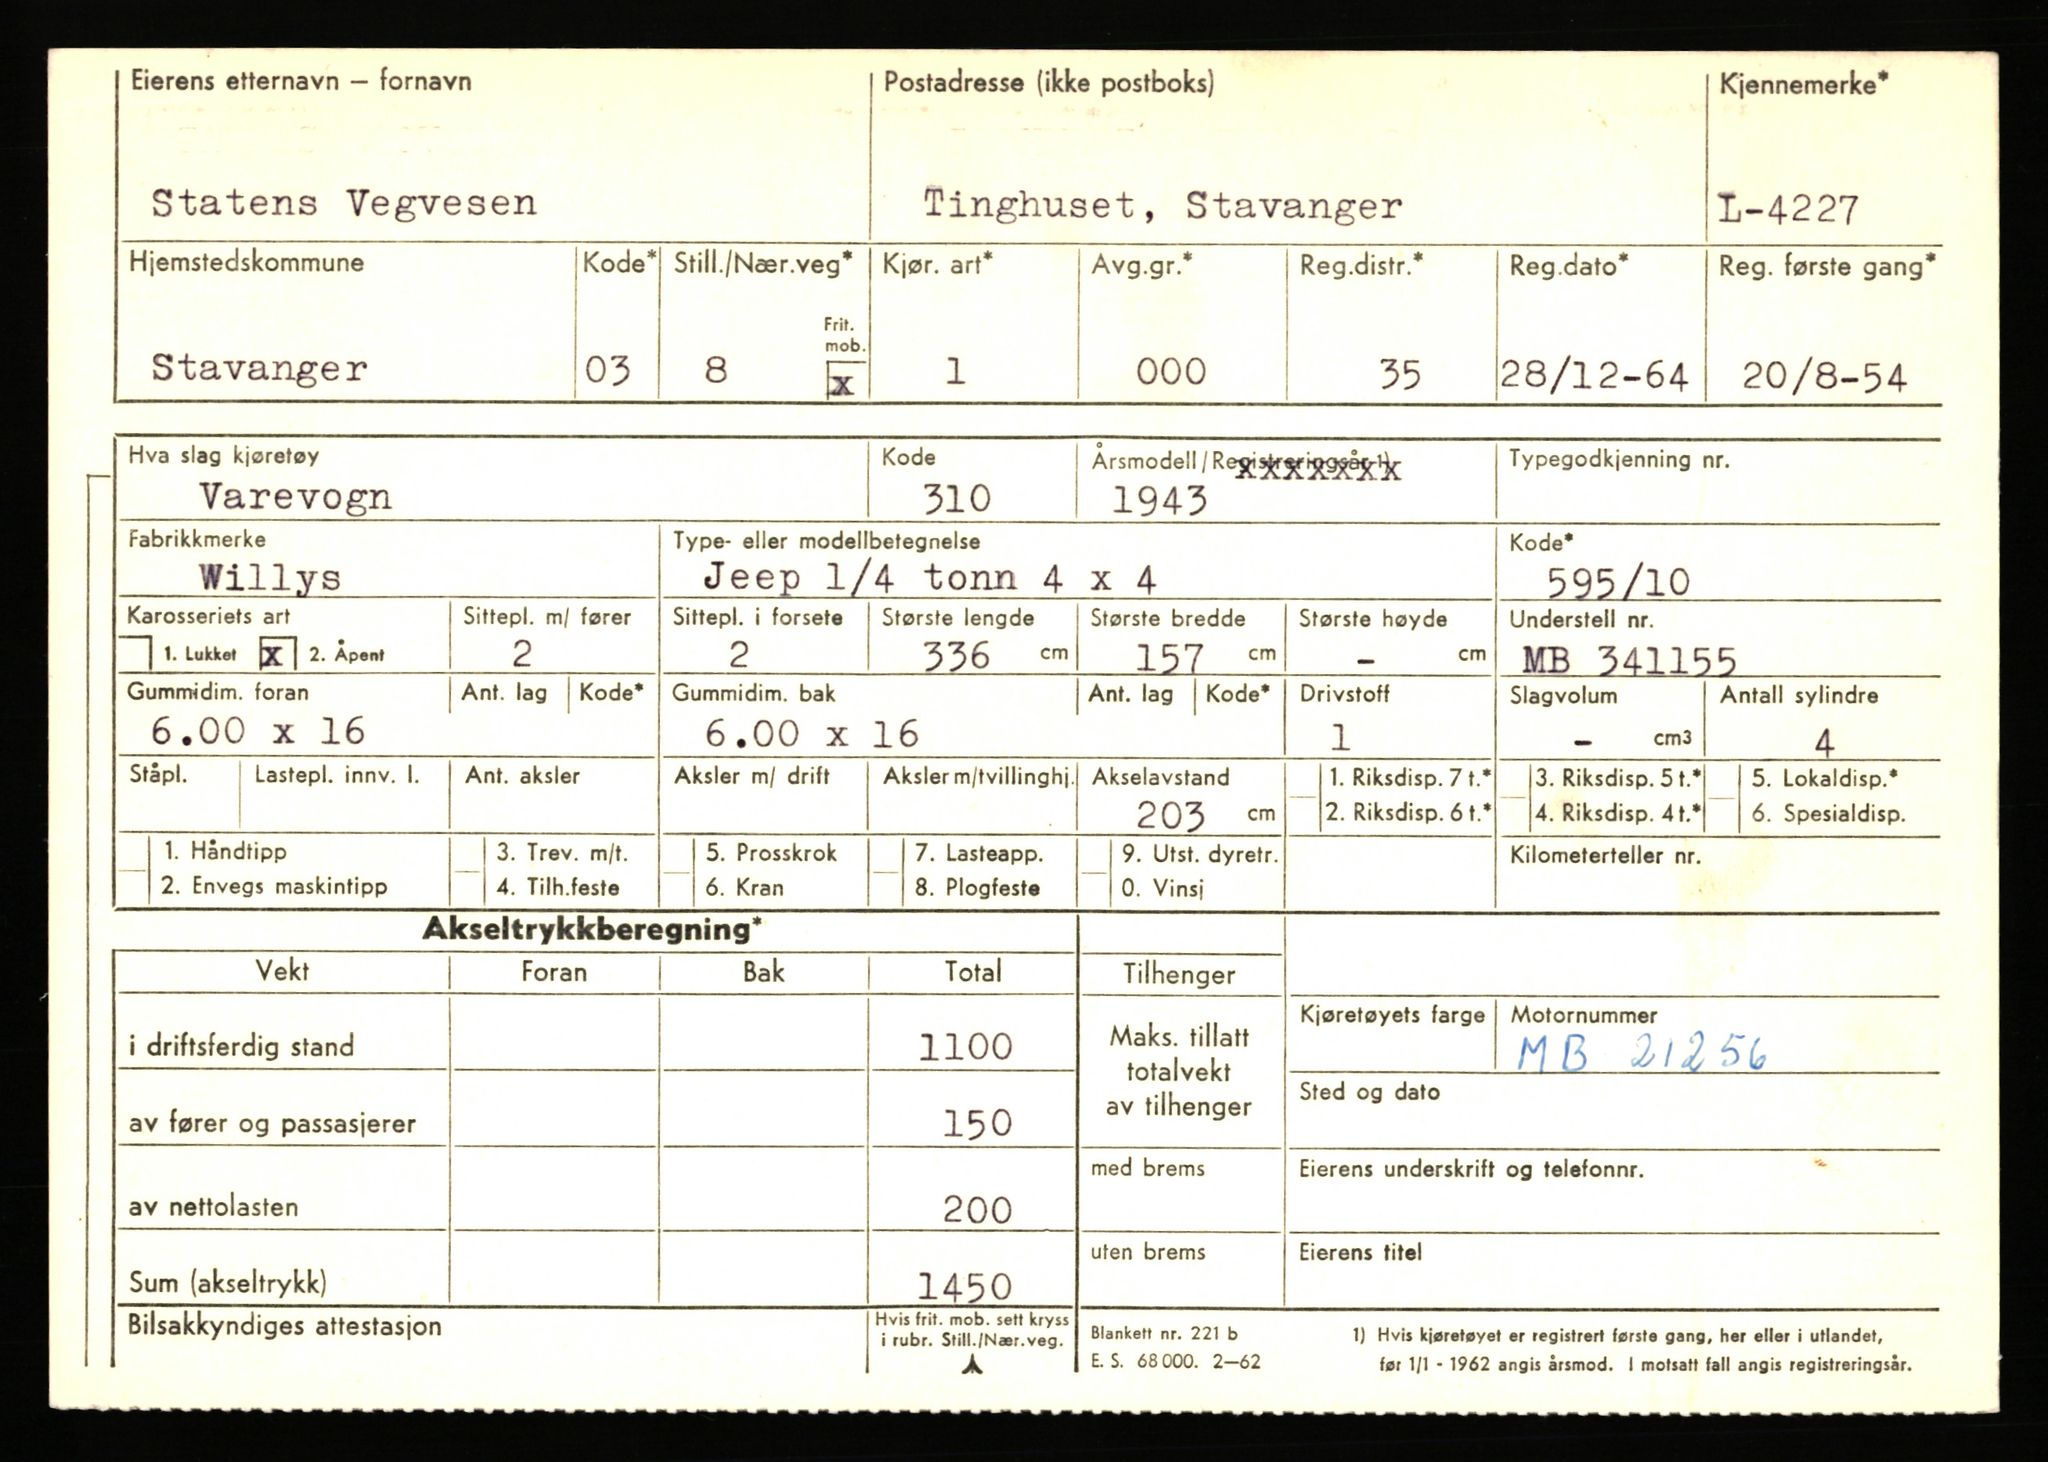 Eierens etternavn – fornavn Postadresse (ikke postboks) Kjennemerke*
Statens Vegvesen Tinghuset, Stavanger L-4227
Hjemstedskommune Kode* Still./Nær.veg* Kjør. art* Avg.gr.* Reg.distr.* Reg.dato* Reg. første gang*
Frit.
mob.
Stavanger 03 8 x 1 000 35 28/12-64 20/8-54
Hva slag kjøretøy Kode Årsmodell/Registreringsår 1) Typegodkjenning nr.
xxxxxxx
Varevogn 310 1943
Fabrikkmerke Type- eller modellbetegnelse Kode*
Willys Jeep 1/4 tonn 4 x 4 595/10
Karosseriets art Sittepl. m/ fører Sittepl. i forsete Største lengde Største bredde Største høyde Understell nr.
1. Lukket x 2. Åpent 2 2 336 cm 157 cm - cm MB 341155
Gummidim. foran Ant. lag Kode* Gummidim. bak Ant. lag Kode* Drivstoff Slagvolum Antall sylindre
6.00 x 16 6.00 x 16 1 - cm3 4
Ståpl. Lastepl. innv. l. Ant. aksler Aksler m/ drift Aksler m/tvillinghj. Akselavstand 1. Riksdisp. 7 t.* 3. Riksdisp. 5 t.* 5. Lokaldisp.*
203 cm 2. Riksdisp. 6 t.* 4. Riksdisp. 4 t.* 6. Spesialdisp.
1. Håndtipp 3. Trev. m/t. 5. Prosskrok 7. Lasteapp. 9. Utst. dyretr. Kilometerteller nr.
2. Envegs maskintipp 4. Tilh.feste 6. Kran 8. Plogfeste 0. Vinsj
Akseltrykkberegning*
Vekt Foran Bak Total Tilhenger
Kjøretøyets farge Motornummer
i driftsferdig stand 1100 Maks. tillatt MB 21256
totalvekt
av tilhenger Sted og dato
av fører og passasjerer 150
med brems Eierens underskrift og telefonnr.
av nettolasten 200
uten brems Eierens titel
Sum (akseltrykk) 1450
Bilsakkyndiges attestasjon Hvis frit. mob. sett kryss Blankett nr. 221 b 1) Hvis kjøretøyet er registrert første gang, her eller i utlandet,
i rubr. Still./Nær.veg. E. S. 68 000. 2—62 før 1/1 - 1962 angis årsmod. I motsatt fall angis registreringsår.